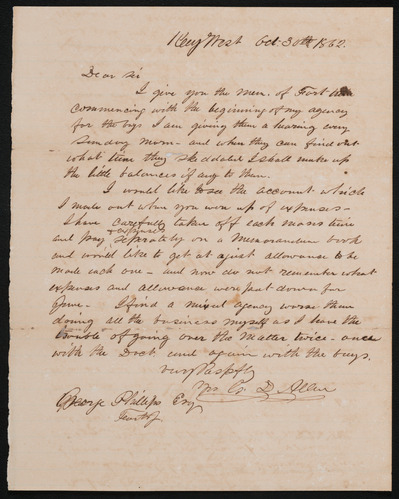 Key West Oct 30th 1862.
Dear Sir
I give you the men. of Fort
commencing with the beginning of my agency
for the boys I am giving them a hearing every
Sunday morn - and when they can find out
what time they skeddaled I shall make up
the little balances if any to them.
I would like to see the account which
I made out when you were up of expenses -
I have carefully taken off each mans time
and pay separately on a Memorandum book
and would like to get at a just allowance to be
made each one - and now do not remember what
expenses and allowance were put down for
June - I find a mixed agency worse than
doing all the business myself as I have the
trouble of going over the matter twice - once
with the Doct and again with the boys.
very Respfly
Yrs D. Allen
George Phillips Esq
Fort J